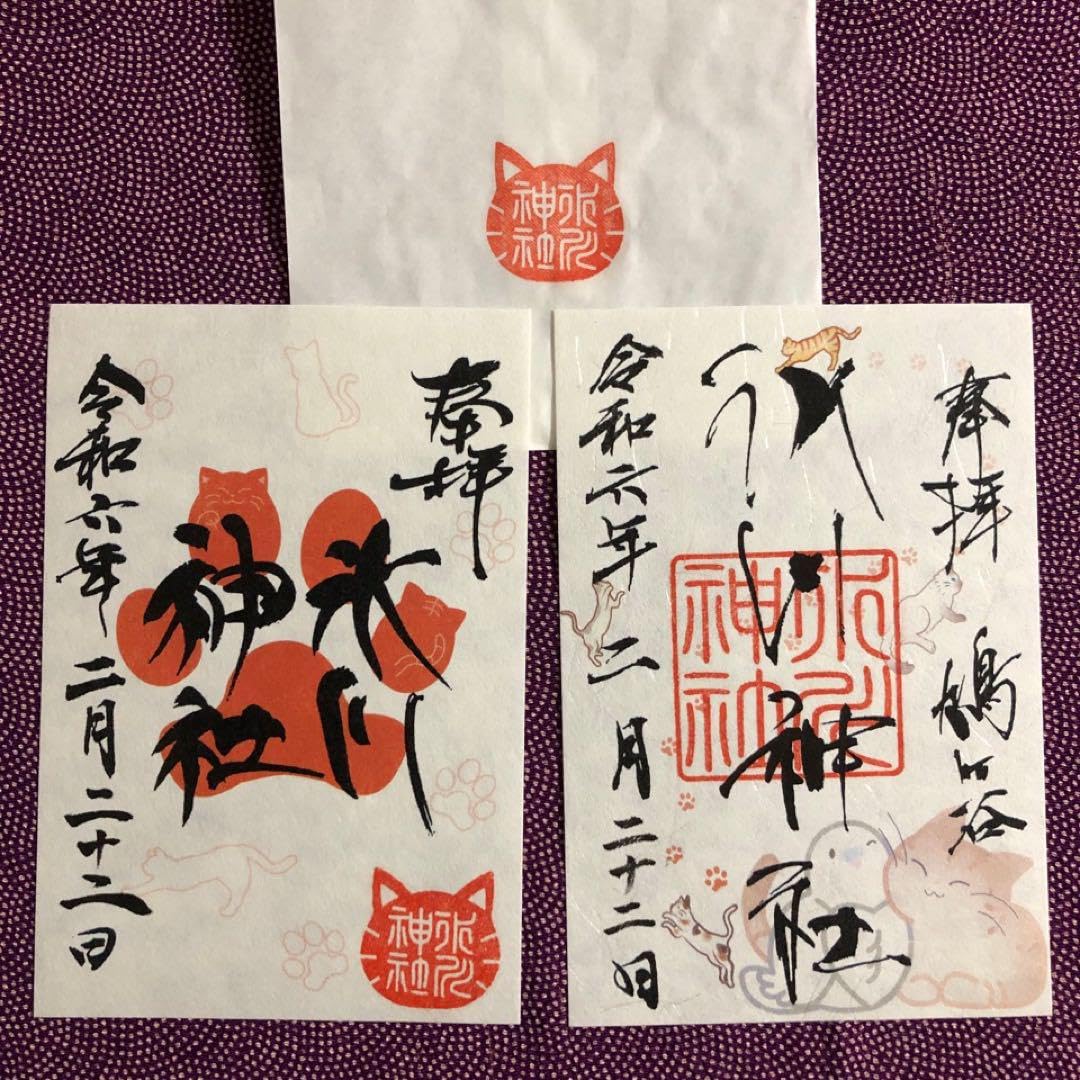 氷川
神社
奉拝
氷川
神社
令和六年 二月二十二日
氷川
神社
奉拝 鳩ヶ谷
氷川神社
氷川
神社
令和六年 二月二十二日